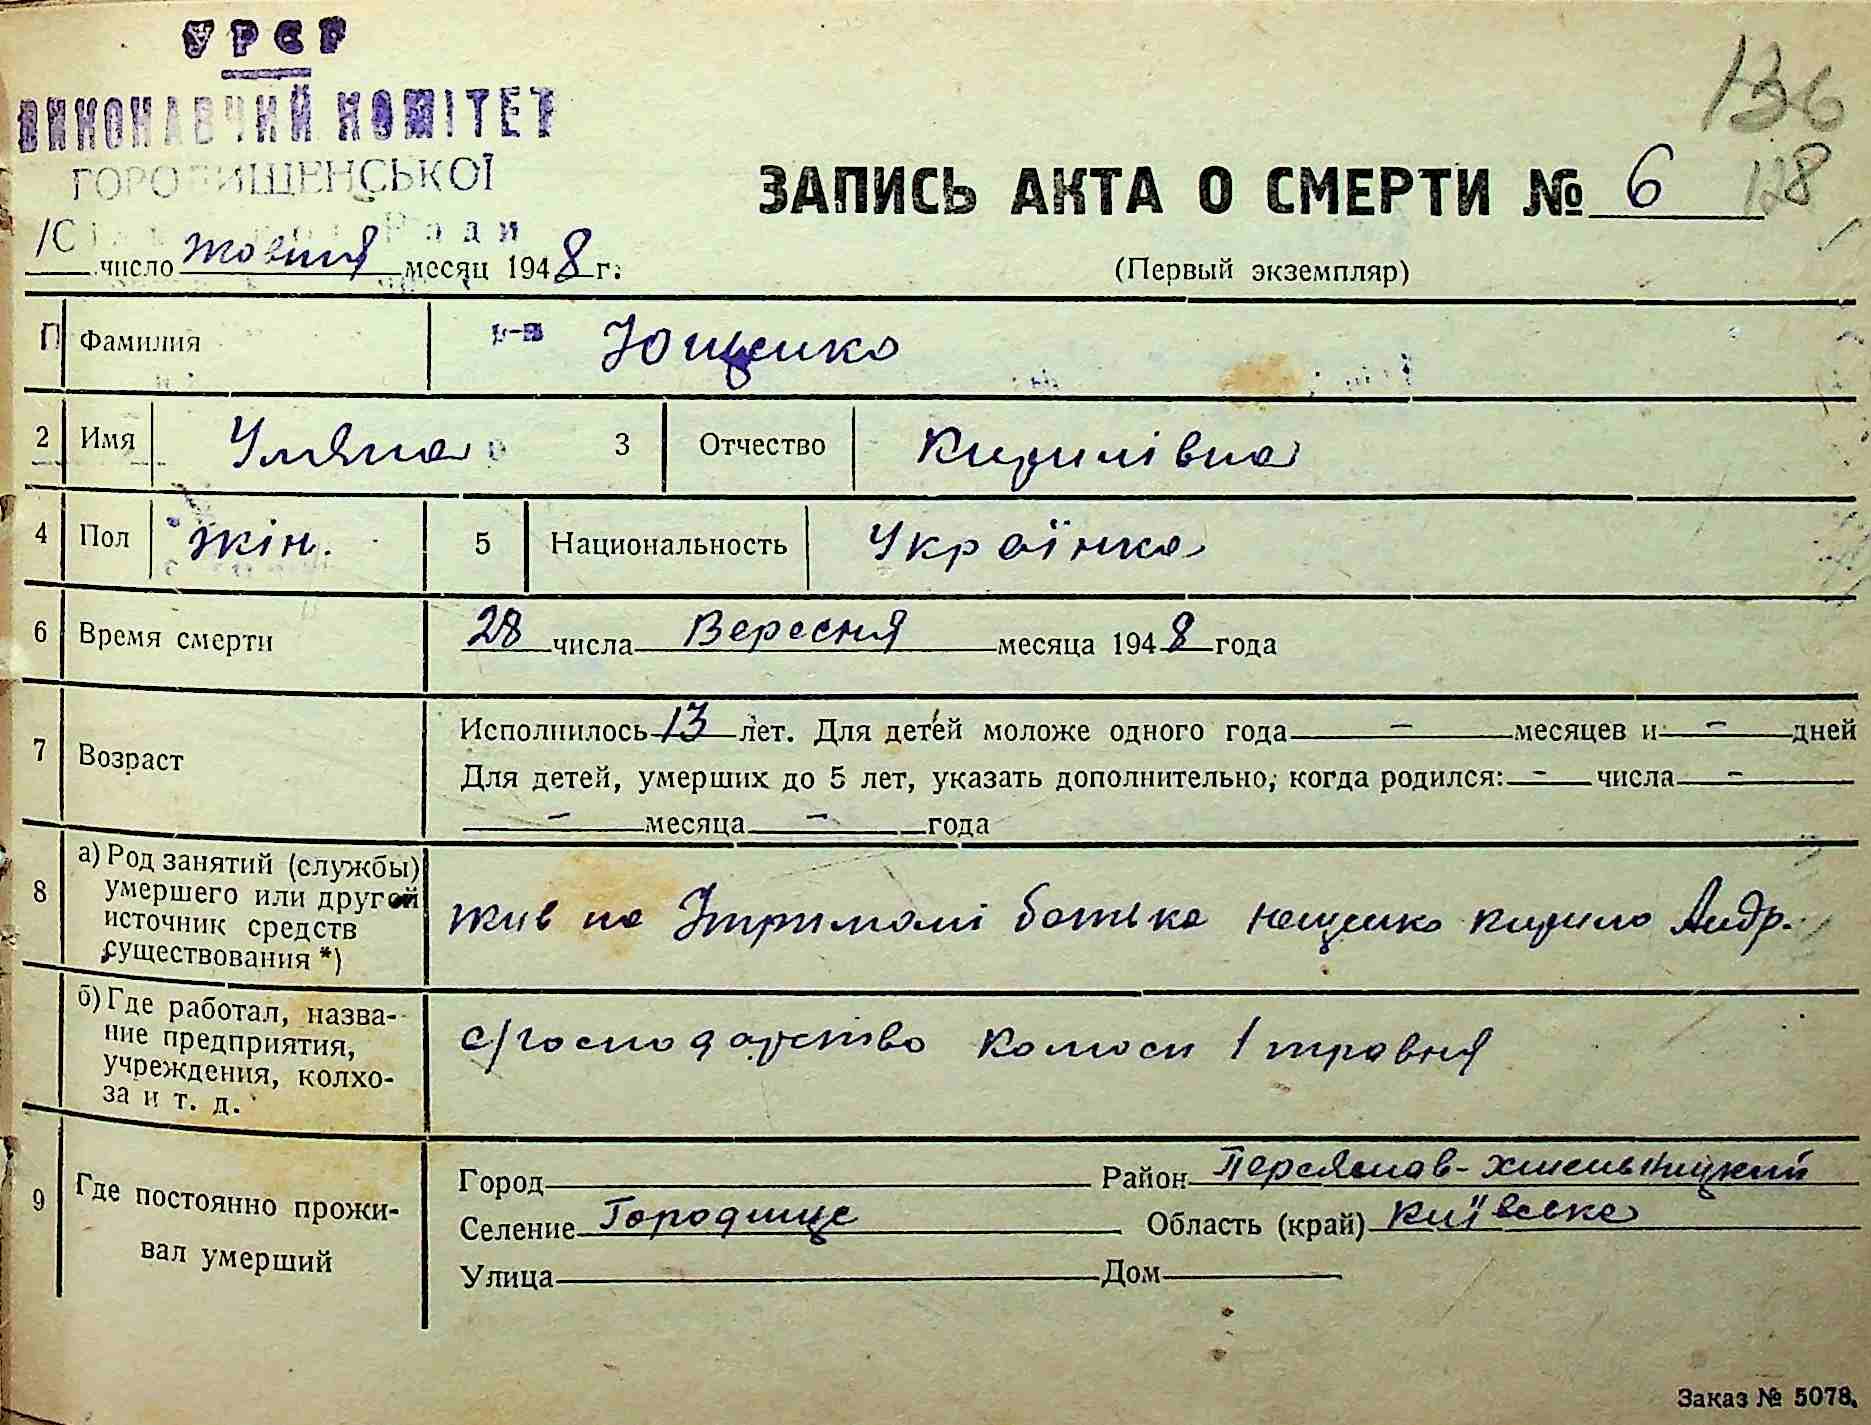 УРСР
ВИКОНАВЧИЙ КОМІТЕТ
ГОРОДИЩЕНСЬКОЇ
Ради
136
128
ЗАПИСЬ АКТА О СМЕРТИ № 6
(Первый экземпляр)
число жовтня месяц 1948 г.
Фамилия р-н Ющенко
2 Имя Уляна 3 Отчество Кирилівна
4 Пол жін. 5 Национальность Українка
6 Время смерти 28 числа Вересня месяца 1948 года
7 Возраст
Исполнилось 13 лет. Для детей моложе одного года - месяцев и - дней
Для детей, умерших до 5 лет, указать дополнительно, когда родился: - числа -
- месяца - года
8 а) Род занятий (службы)
умершего или другой
источник средств
существования *)
жив на Утримані батька Ющенко Кирило Андр.
б) Где работал, назва-
ние предприятия,
учреждения, колхо-
за и т. д.
с/господарство Колгосп 1 травня
9 Где постоянно прожи-
вал умерший
Город Район Переяслав-Хмельницкий
Селение Городище Область (край) Київська
Улица Дом
Заказ № 5078.